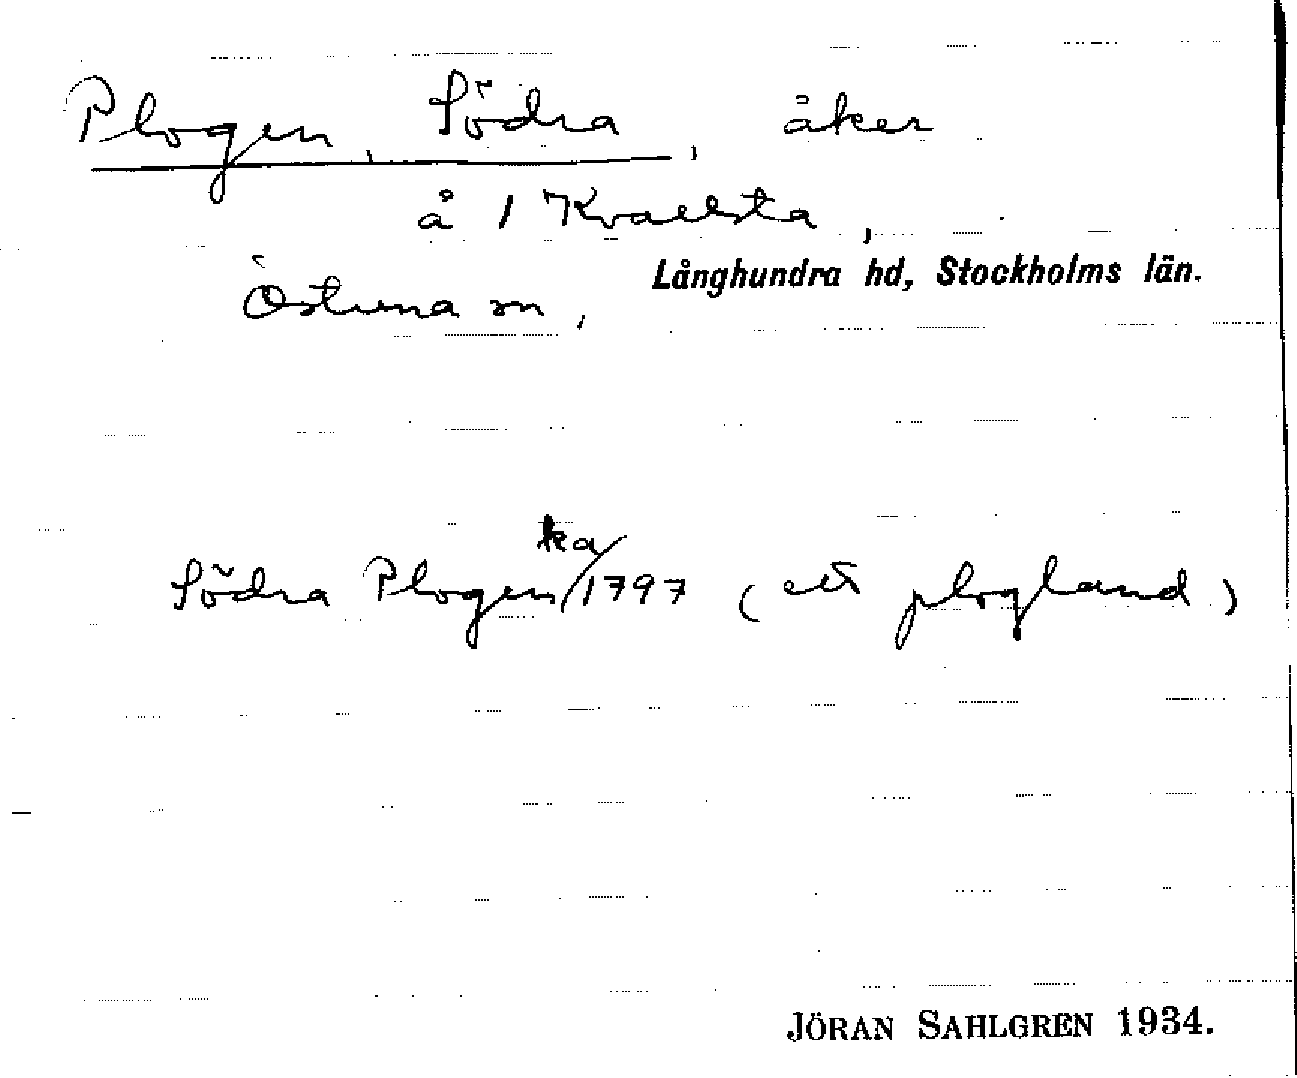 Plogen, Södra, åker
å 1 Kvallsta,
Östuna sn, Långhundra hd, Stockholms län.
Södra Plogen ka/1797 (ett plogland)
JÖRAN SAHLGREN 1934.